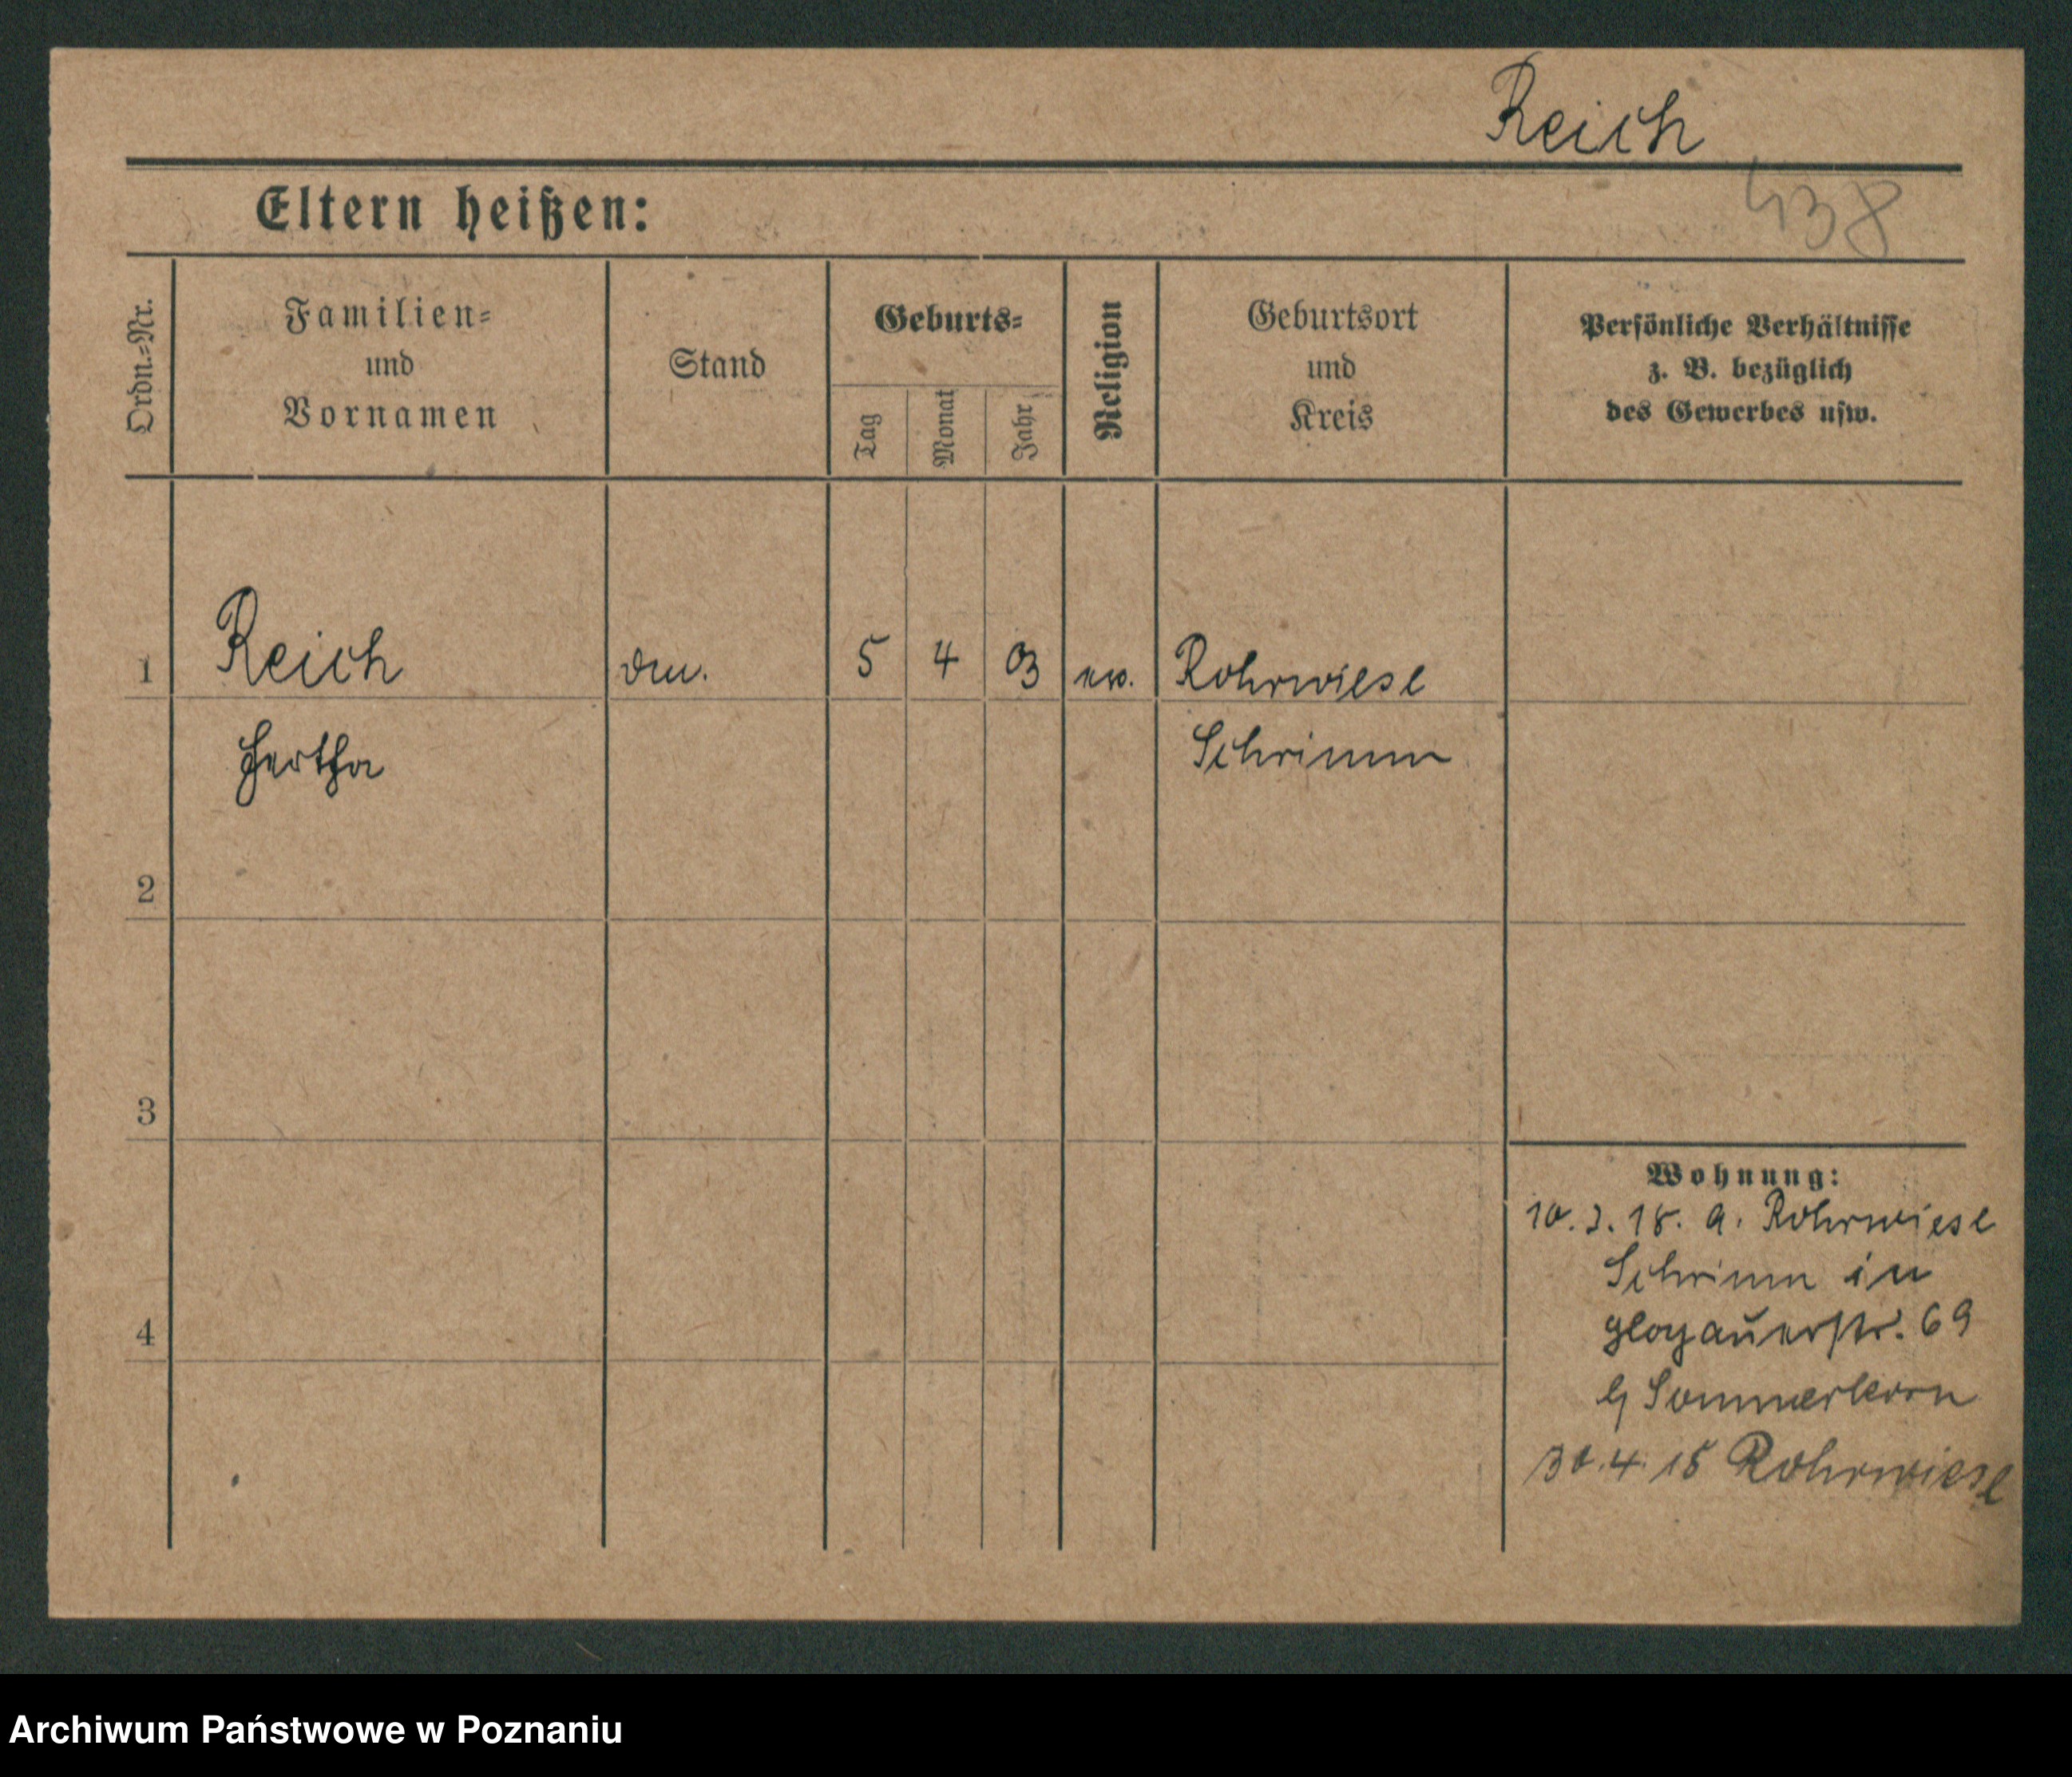 Reich
438
Eltern heißen:
Ordn.-Nr.
Familien-
und
Vornamen
Stand
Geburts-
Tag
Monat
Jahr
Religion
Geburtsort
und
Kreis
Persönliche Verhältnisse
z. B. bezüglich
des Gewerbes usw.
1 Reich 5 4 03 Rohrwiese
Hertha Schrimm
2
3
4
Wohnung:
10. 3. 18. a. Rohrwiese
Schrimm in
Glogauerstr. 69
b/ Sommerkorn
30. 4. 18 Rohrwiese
Archiwum Państwowe w Poznaniu